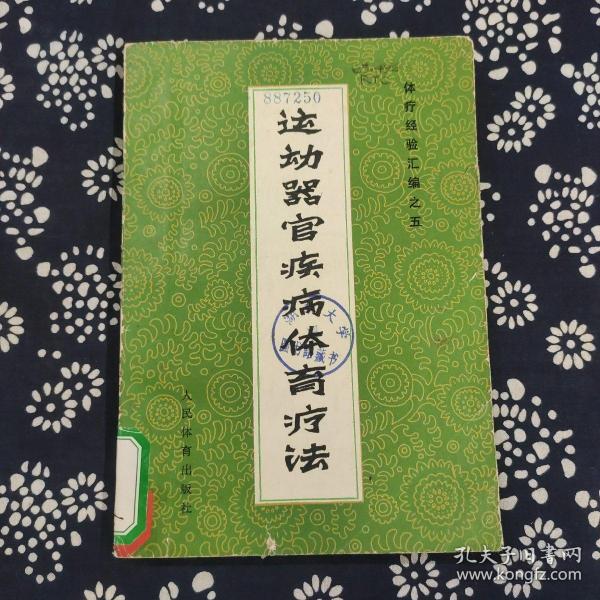 887250
体疗经验汇编之五
运动器官疾病体育疗法
大学
藏书
人民体育出版社
孔夫子旧书网
www.kongfz.com